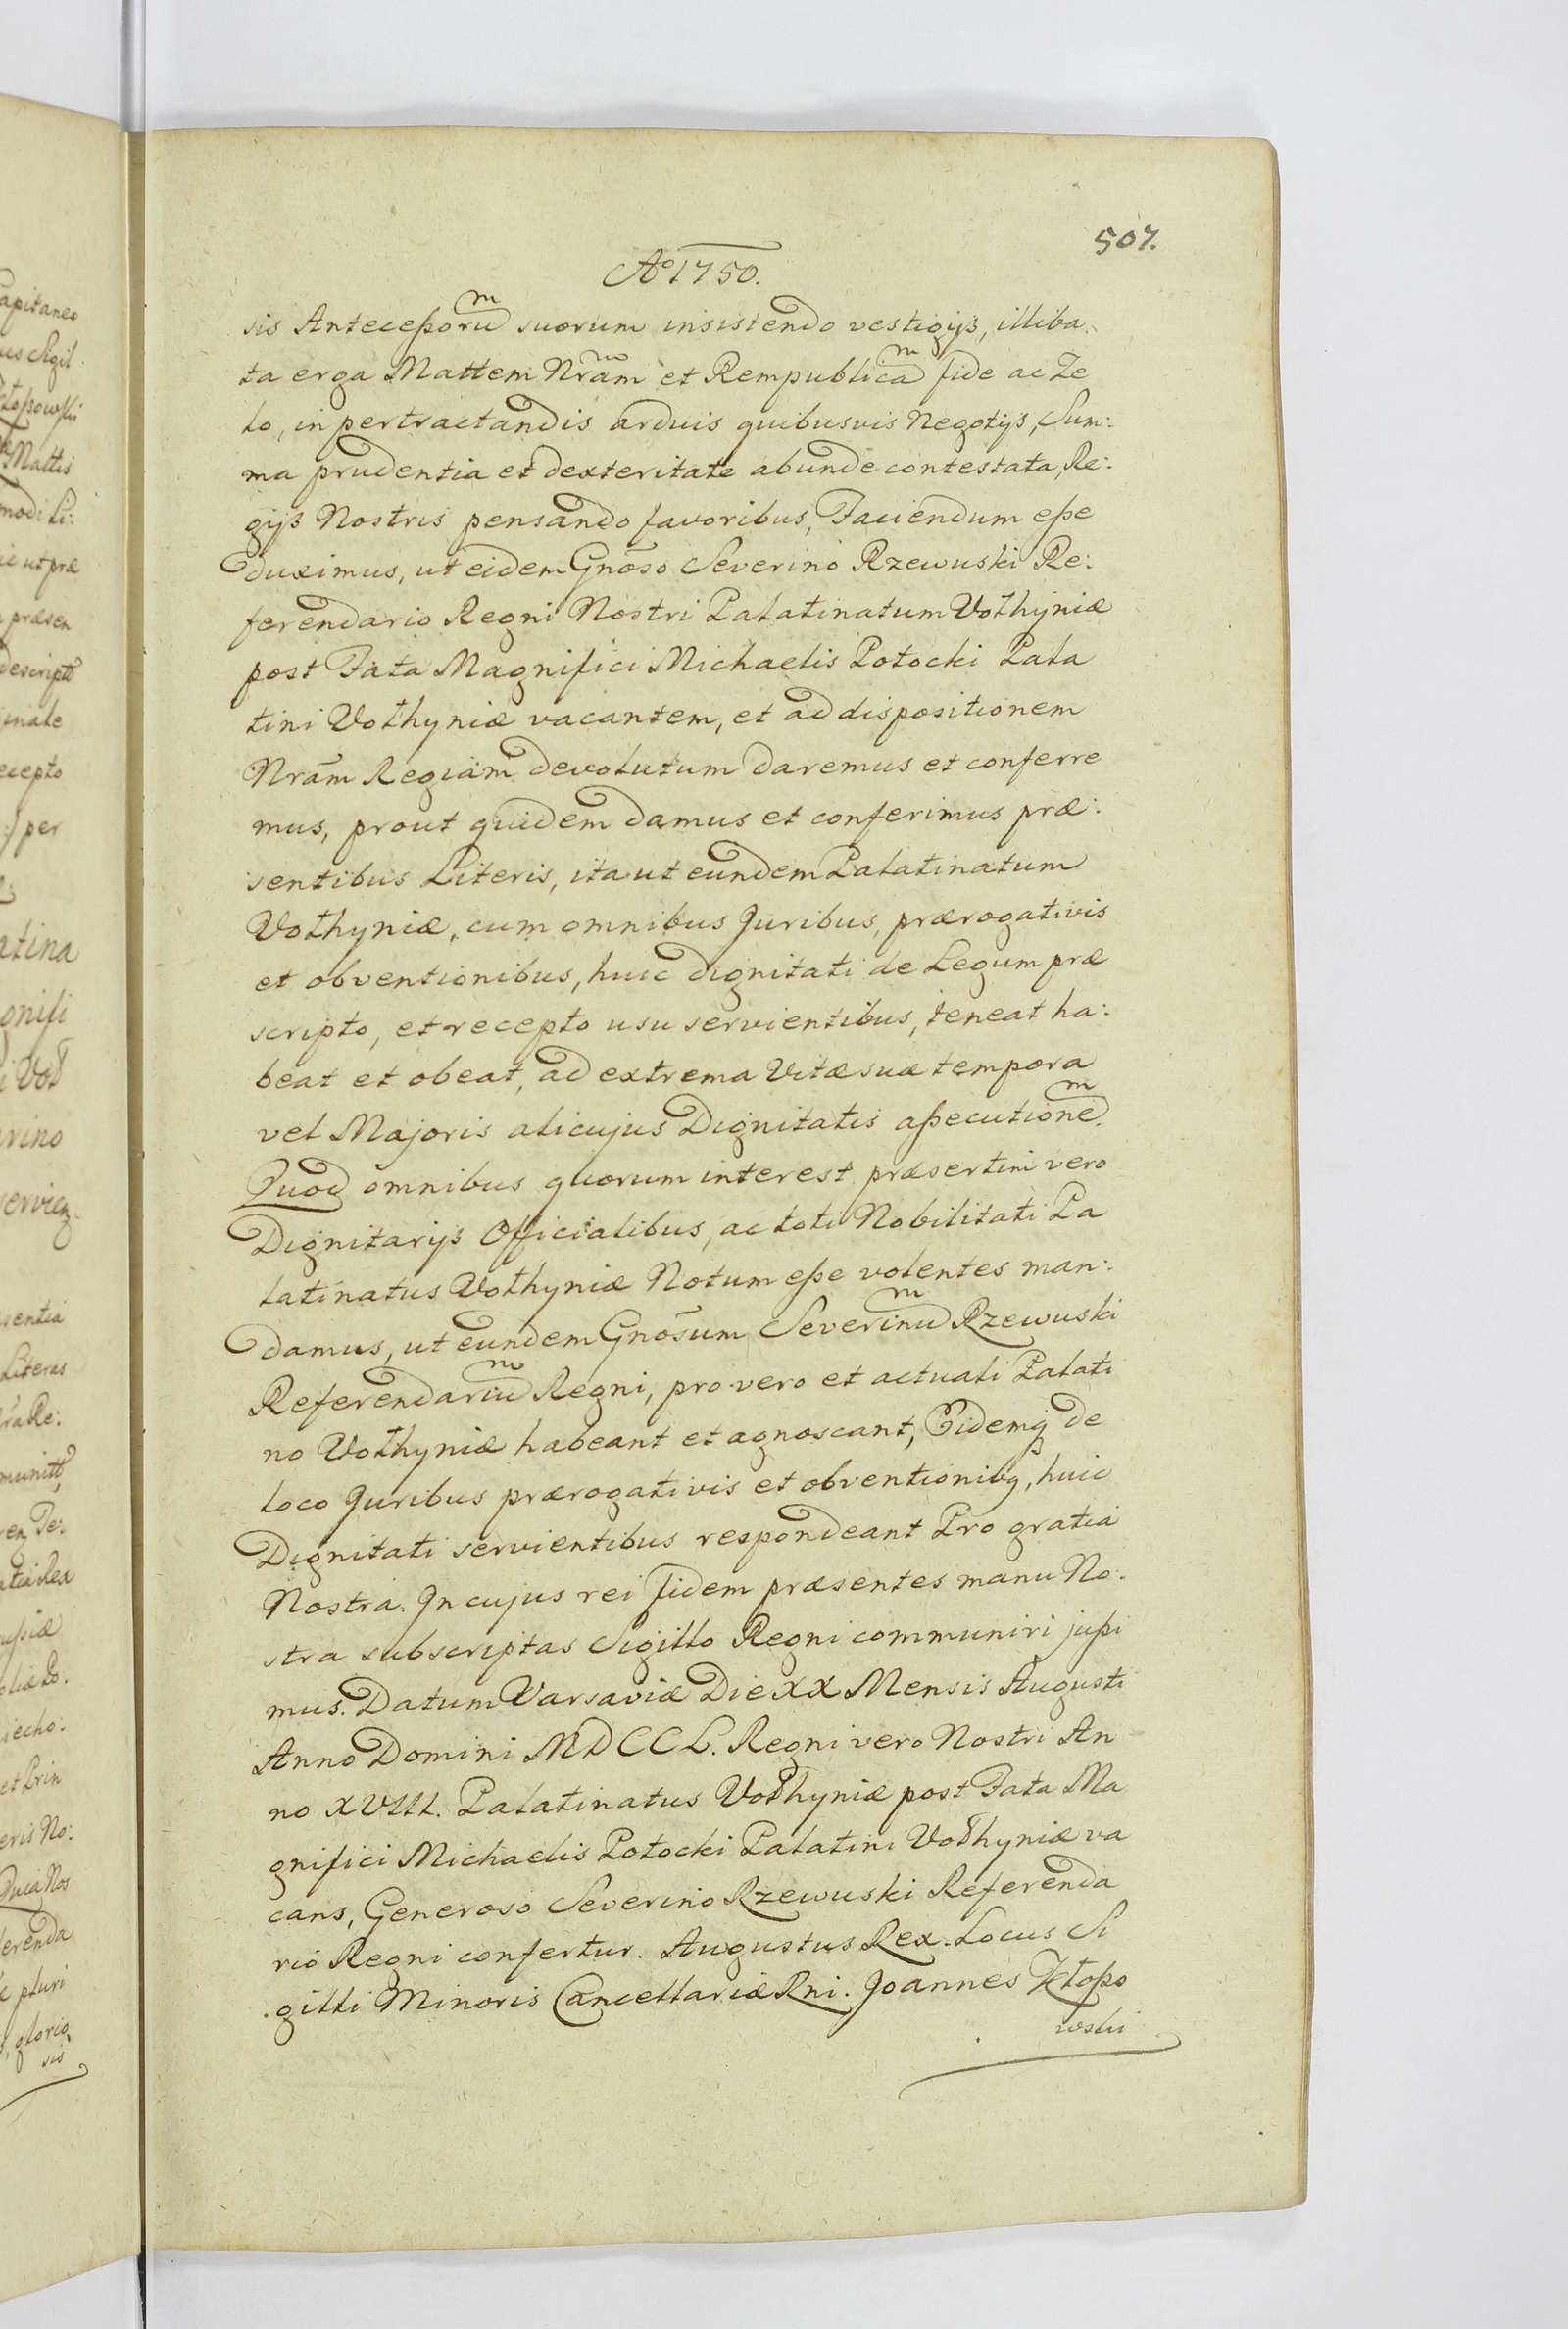 507.
Aº 1750.
sis Anteceßorum suorum insistendo vestigijs, illiba
ta erga Mattem Nram et Rempublicam fide ac Ze
lo, in pertractandis arduis quibusvis Negotijs, Sum:
ma prudentia et dexteritate abunde contestata, Re:
gijs Nostris pensando favoribus, Faciendum eße
duximus, ut eidem Gnoso Severino Rzewuski Re:
ferendario Regni Nostri Palatinatum Volhyniæ
post Fata Magnifici Michaelis Potocki Pala
tini Volhyniæ vacantem, et ad dispositionem
Nram Regiam devolutum daremus et conferre
mus, prout quidem damus et conferimus præ:
sentibus Literis, ita ut eundem Palatinatum
Volhyniæ, cum omnibus Juribus, prærogativis
et obventionibus, huic dignitati de Legum præ
scripto, et recepto usu servientibus, teneat ha:
beat et obeat, ad extrema Vitæ suæ tempora
vel Majoris alicujus Dignitatis aßecutionem.
Quod omnibus quorum interest præsertim vero
Dignitarijs Officialibus, ac toti Nobilitati Pa
latinatus Volhyniæ Notum eße volentes man:
damus, ut eundem Gnosum Severinum Rzewuski
Referendarium Regni, pro vero et actuali Palati
no Volhyniæ habeant et agnoscant, Eidemq de
loco Juribus prærogativis et obventionibq, huic
Dignitati servientibus respondeant Pro gratia
Nostra. In cujus rei fidem præsentes manu No:
stra subscriptas Sigillo Regni communiri jußi
mus. Datum Varsaviæ Die XX Mensis Augusti
Anno Domini MDCCL. Regni vero Nostri An
no XVIII. Palatinatus Volhyniæ post Fata Ma
gnifici Michaelis Potocki Palatini Volhyniæ va
cans, Generoso Severino Rzewuski Referenda
rio Regni confertur. Augustus Rex. Locus Si
gilli Minoris Cancellariæ Rni. Joannes Kłoßo
wski